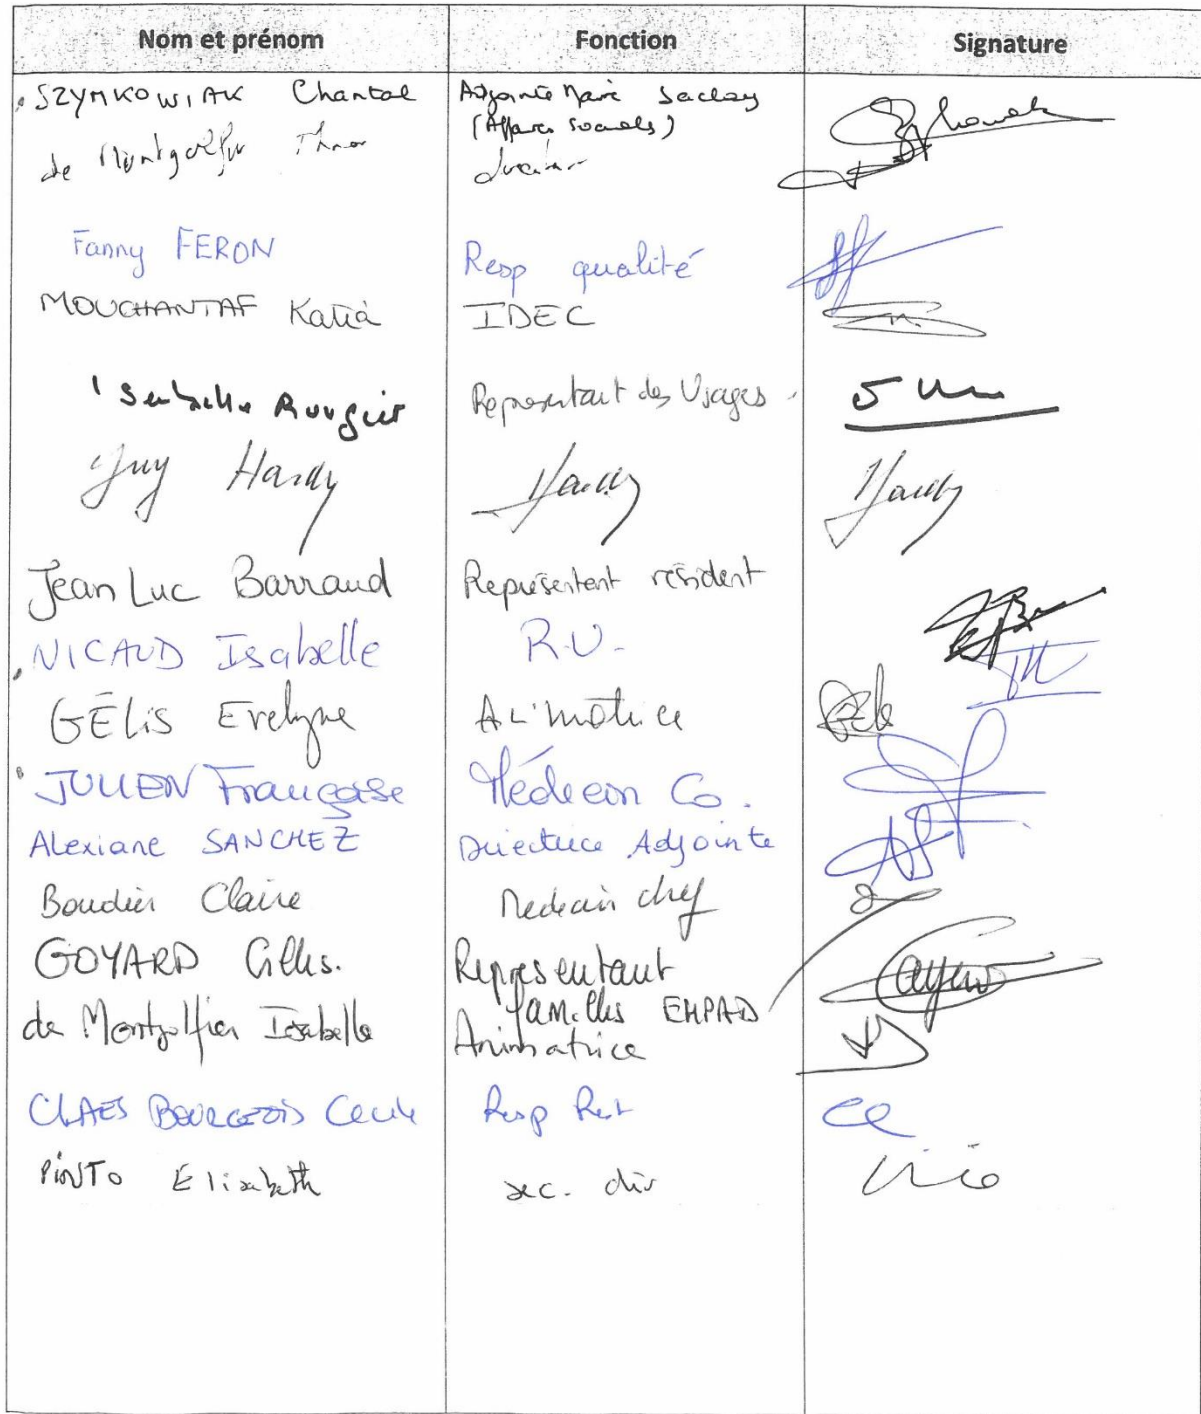 Nom et prénom Fonction Signature
SZYMKOWIAK Chantal Adjointe Maire Saclay
(Affaires sociales)
de Montgolfier
Fanny FERON Resp qualité
MOUCHANTAF Katia IDEC
Représentant des Usagers
Guy Hardy Hardy Hardy
Jean Luc Barraud Représentent résident
NICAUD Isabelle R.U.
GÉLIS Evelyne
JULIEN Françoise Médecin Co.
Alexiane SANCHEZ Directrice Adjointe
Boudier Claire Medecin chef
GOYARD Gilles. Représentant
familles EHPAD
de Montgolfier Isabelle Animatrice
CLAES BOURGEOIS Cecile Resp Rest
PINTO Elisabeth sec. dir